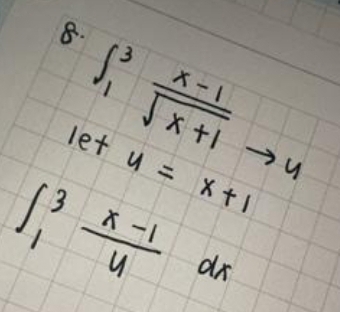 8. ∫₁³ (x-1)/√(x+1) → u
let u = x+1
∫₁³ (x-1)/u dx